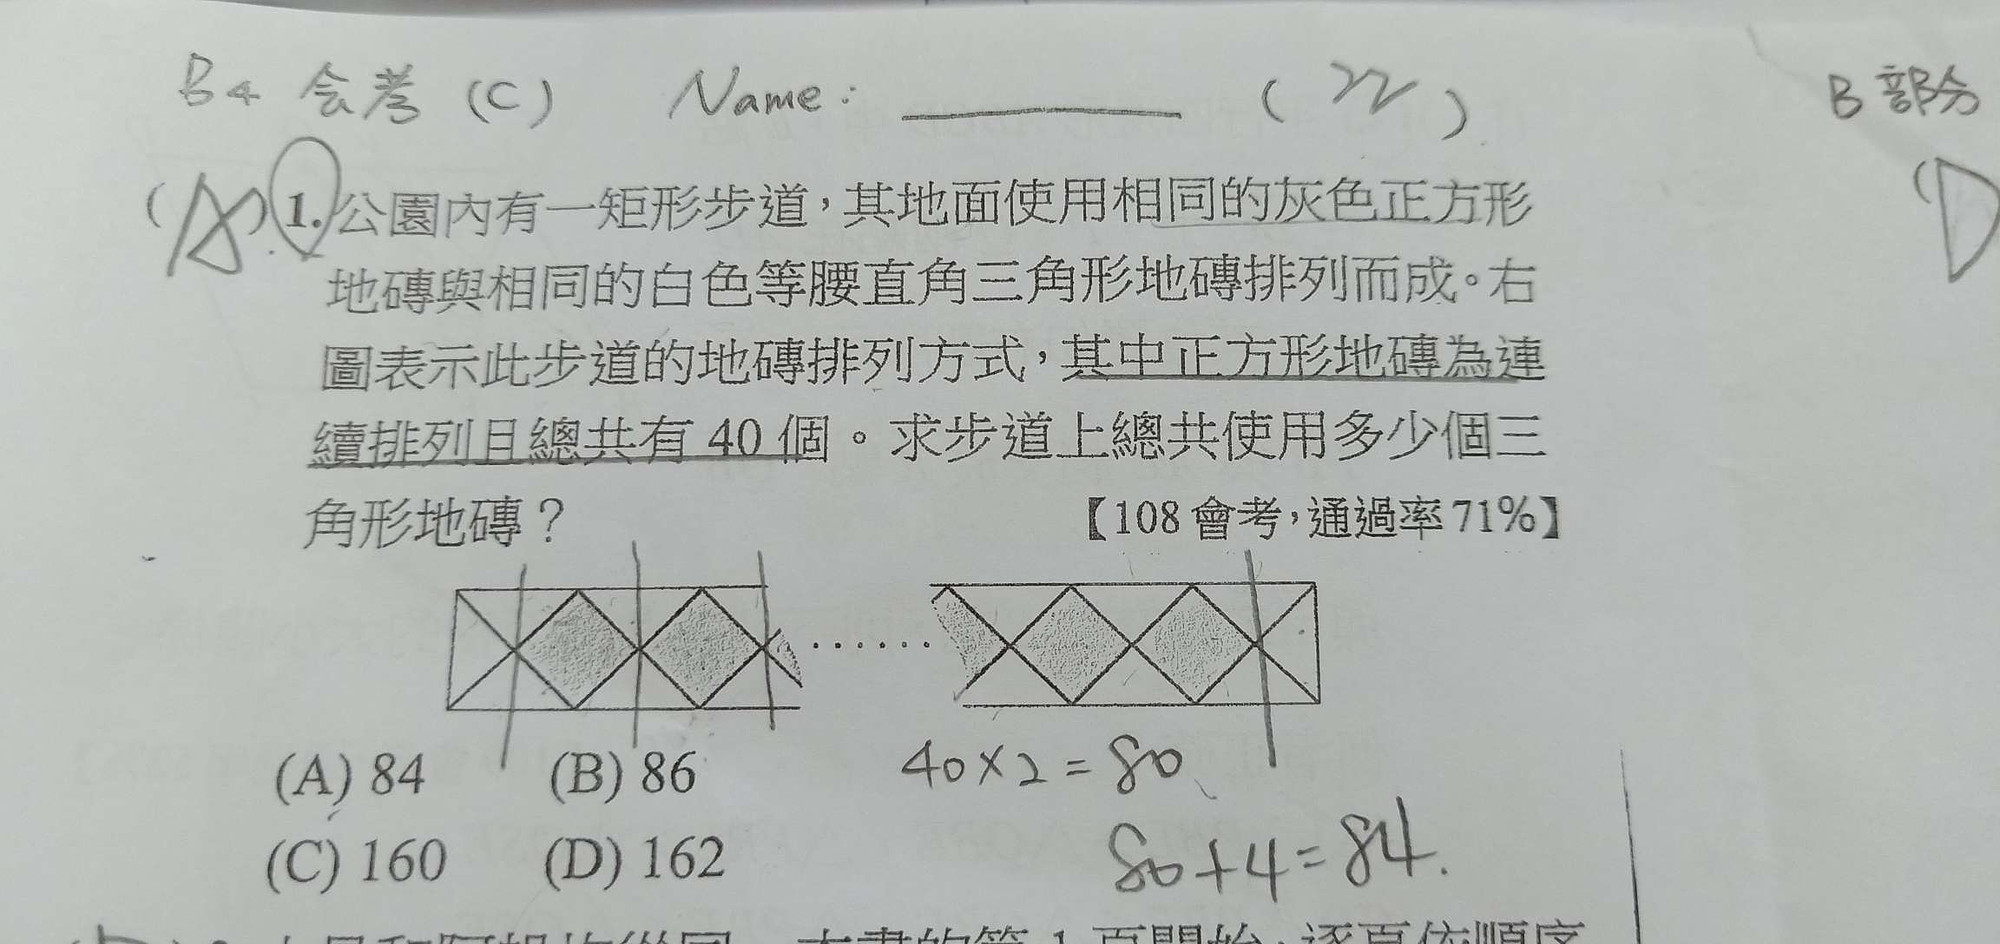 B4 会考 (C) Name: ( 22 )
B 部分
(A) 1. 公園內有一矩形步道，其地面使用相同的灰色正方形
(D
地磚與相同的白色等腰直角三角形地磚排列而成。右
圖表示此步道的地磚排列方式，其中正方形地磚為連
續排列且總共有 40 個。求步道上總共使用多少個三
角形地磚？ 【108 會考，通過率 71%】
(A) 84 (B) 86 40×2=80
(C) 160 (D) 162 80+4=84.